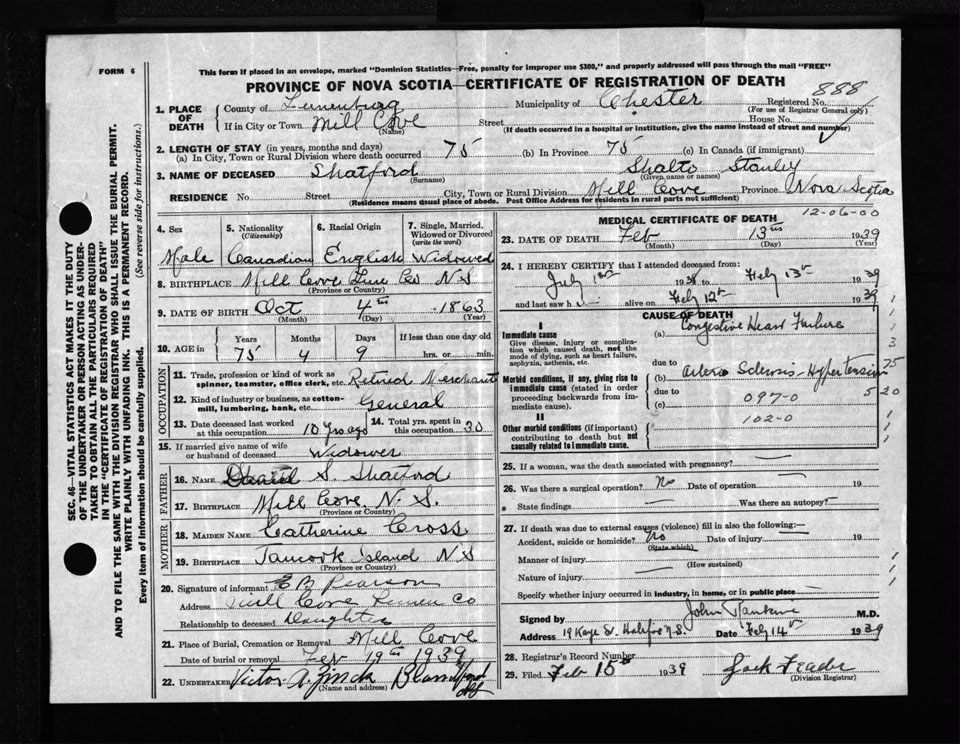 FORM 6
This form if placed in an envelope, marked "Dominion Statistics—Free, penalty for improper use $300," and properly addressed will pass through the mail "FREE"
PROVINCE OF NOVA SCOTIA—CERTIFICATE OF REGISTRATION OF DEATH
888
1. PLACE OF DEATH
County of Lunenburg Municipality of Chester Registered No.
(For use of Registrar General only)
If in City or Town Mill Cove Street House No.
(Name) (If death occurred in a hospital or institution, give the name instead of street and number)
2. LENGTH OF STAY (in years, months and days)
(a) In City, Town or Rural Division where death occurred 75 (b) In Province 75 (c) In Canada (if immigrant)
3. NAME OF DECEASED Shatford Shalto Stanley
(Surname) (Given name or names)
RESIDENCE No. Street City, Town or Rural Division Mill Cove Province Nova Scotia
(Residence means usual place of abode. Post Office Address for residents in rural parts not sufficient)
SEC. 46—VITAL STATISTICS ACT MAKES IT THE DUTY
OF THE UNDERTAKER OR PERSON ACTING AS UNDER-
TAKER TO OBTAIN ALL THE PARTICULARS REQUIRED
IN THE "CERTIFICATE OF REGISTRATION OF DEATH"
AND TO FILE THE SAME WITH THE DIVISION REGISTRAR WHO SHALL ISSUE THE BURIAL PERMIT.
WRITE PLAINLY WITH UNFADING INK. THIS IS A PERMANENT RECORD.
Every item of Information should be carefully supplied. (See reverse side for instructions.)
4. Sex 5. Nationality (Citizenship) 6. Racial Origin 7. Single, Married, Widowed or Divorced (write the word)
Male Canadian English Widowed
8. BIRTHPLACE Mill Cove Lun Co N S
(Province or Country)
9. DATE OF BIRTH Oct 4th 1863
(Month) (Day) (Year)
10. AGE in Years Months Days If less than one day old
75 4 9 hrs. or min.
OCCUPATION
11. Trade, profession or kind of work as spinner, teamster, office clerk, etc. Retired Merchant
12. Kind of industry or business, as cotton-mill, lumbering, bank, etc. General
13. Date deceased last worked at this occupation 10 yrs ago 14. Total yrs. spent in this occupation 30
15. If married give name of wife or husband of deceased Widower
FATHER
16. NAME S. Shatford
17. BIRTHPLACE Mill Cove N. S.
(Province or Country)
MOTHER
18. MAIDEN NAME Catherine Cross
19. BIRTHPLACE Tancook Island N S
(Province or Country)
20. Signature of informant E B Pearson
Address Mill Cove Lunen Co
Relationship to deceased Daughter
21. Place of Burial, Cremation or Removal Mill Cove
Date of burial or removal Feb 19th 1939
22. UNDERTAKER Victor A. Zinck Blandford
(Name and address)
MEDICAL CERTIFICATE OF DEATH
12-06-00
23. DATE OF DEATH Feb 13th 1939
(Month) (Day) (Year)
24. I HEREBY CERTIFY that I attended deceased from:
July 1st 19 to Feby 13th 1939
and last saw h alive on Feby 12th 1939
CAUSE OF DEATH
I
Immediate cause
Give disease, injury or complication which caused death, not the mode of dying, such as heart failure, asphyxia, asthenia, etc.
(a) Congestive Heart Failure
due to
Morbid conditions, if any, giving rise to immediate cause (stated in order proceeding backwards from immediate cause).
(b) Arterio Sclerosis - Hypertension
due to
(c) 097-0
II
Other morbid conditions (if important) contributing to death but not causally related to immediate cause.
102-0
3
75
5 20
25. If a woman, was the death associated with pregnancy?
26. Was there a surgical operation? No Date of operation 19
State findings Was there an autopsy?
27. If death was due to external causes (violence) fill in also the following:—
Accident, suicide or homicide? No Date of injury 19
(State which)
Manner of injury
(How sustained)
Nature of injury
Specify whether injury occurred in industry, in home, or in public place
Signed by John Rankine M.D.
Address 19 Kaye St. Halifax N.S. Date Feby 14th 1939
28. Registrar's Record Number
29. Filed Feb 15th 1939
(Division Registrar)